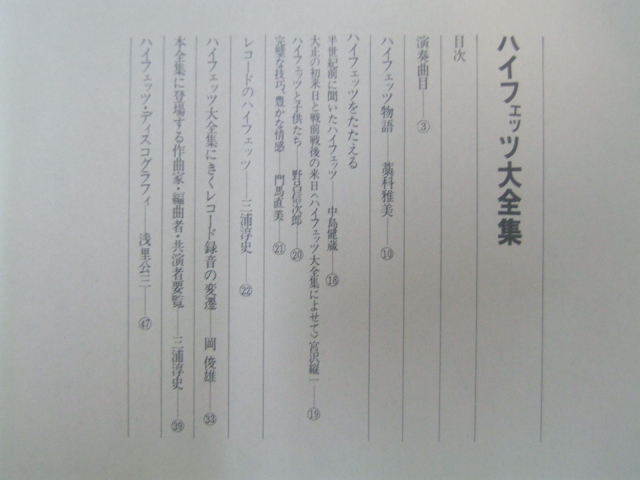 ハイフェッツ大全集
目次
演奏曲目——③
ハイフェッツ物語——藁科雅美——⑩
ハイフェッツをたたえる
半世紀前に聞いたハイフェッツ——中島健蔵——⑱
大正の初来日と戦前戦後の来日〈ハイフェッツ大全集によせて〉宮沢縦一——⑲
ハイフェッツと子供たち——野呂信次郎——⑳
完璧な技巧、豊かな情感——門馬直美——㉑
レコードのハイフェッツ——三浦淳史——㉒
ハイフェッツ大全集にきくレコード録音の変遷——岡 俊雄——㉝
本全集に登場する作曲家・編曲者・共演者要覧——三浦淳史——㊴
ハイフェッツ・ディスコグラフィ——浅里公三——㊼